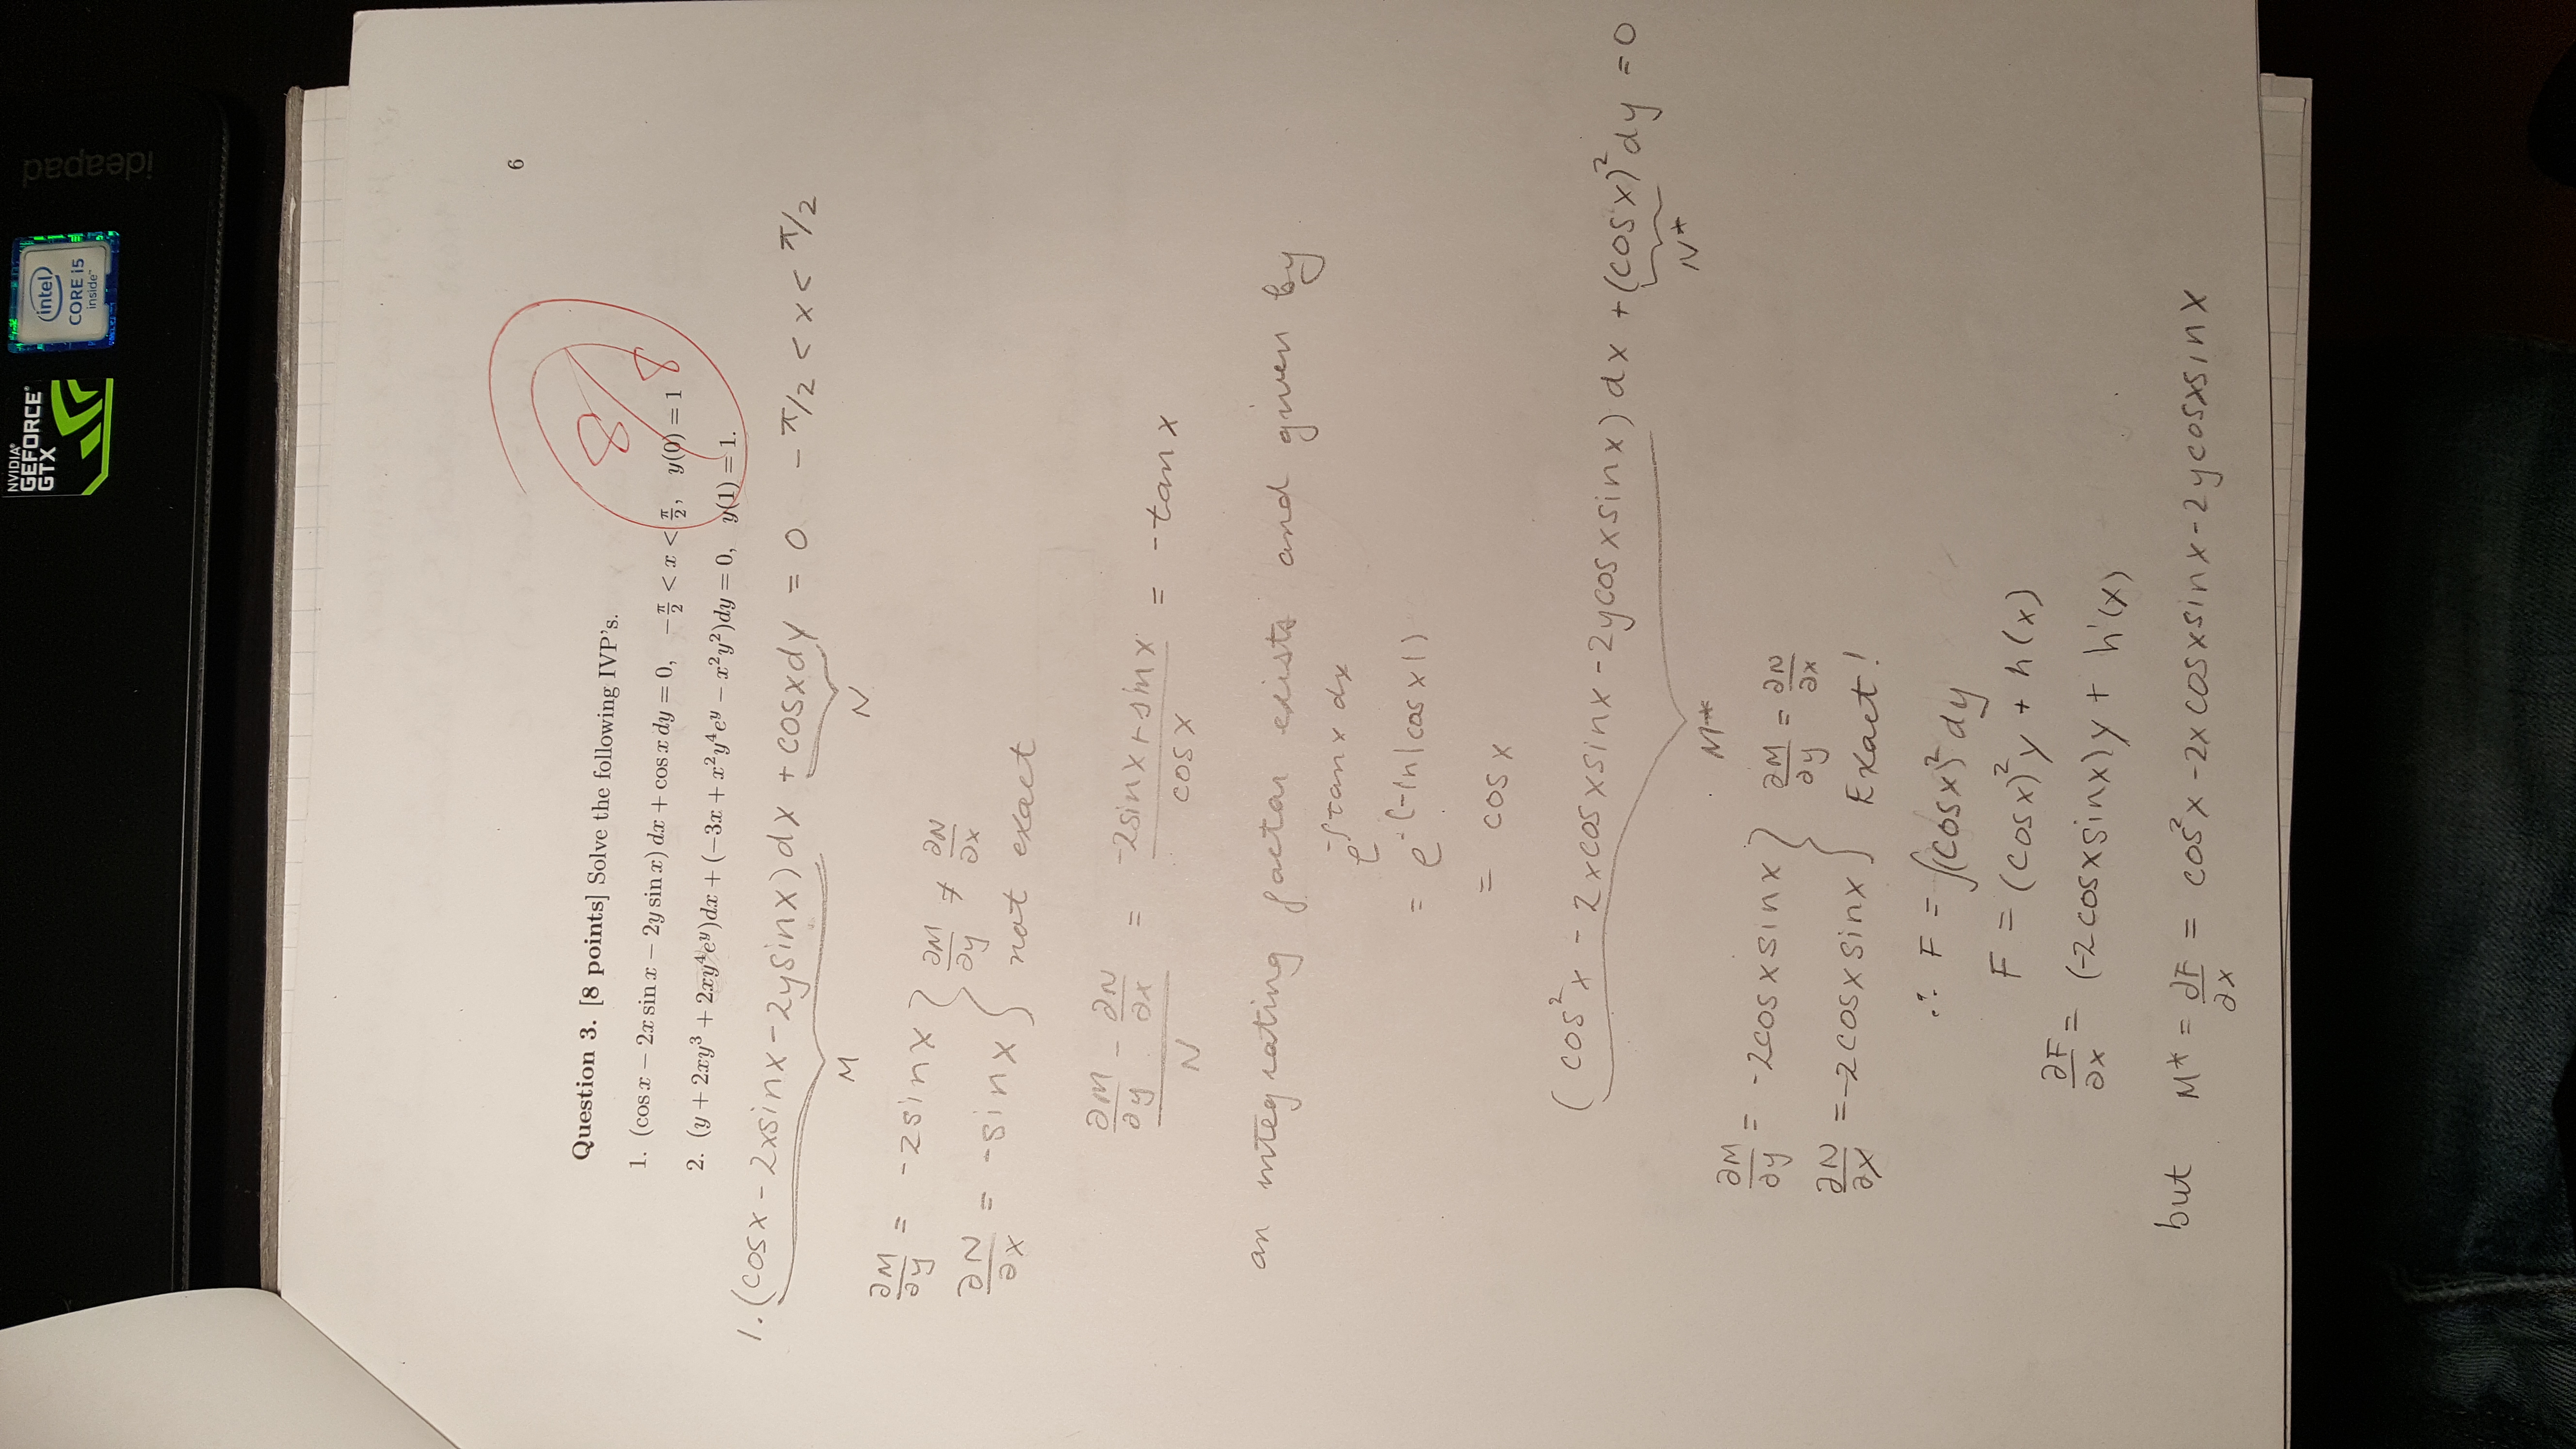 ideapad
intel
CORE i5
inside™
NVIDIA®
GEFORCE®
GTX
6
8/8
Question 3. [8 points] Solve the following IVP's.
1. (cos x − 2x sin x − 2y sin x) dx + cos x dy = 0, −π/2 < x < π/2, y(0) = 1
2. (y + 2xy³ + 2xy⁴e^y)dx + (−3x + x²y⁴e^y − x²y²)dy = 0, y(1) = 1.
1. (cosx - 2xsinx - 2ysinx)dx + cosxdy = 0 - π/2 < x < π/2
M N
∂M/∂y = -2sinx } ∂M/∂y ≠ ∂N/∂x
∂N/∂x = -sinx } not exact
(∂M/∂y - ∂N/∂x)/N = (-2sinx+sinx)/cosx = -tanx
an integrating factor exists and given by
e^-∫tanx dx
= e^-(-ln|cosx|)
= cosx
(cos²x - 2xcosxsinx - 2ycosxsinx)dx + (cosx)²dy = 0
M* N*
∂M/∂y = -2cosxsinx } ∂M/∂y = ∂N/∂x
∂N/∂x = -2cosxsinx } Exact!
∴ F = ∫(cosx)²dy
F = (cosx)²y + h(x)
∂F/∂x = (-2cosxsinx)y + h'(x)
but M* = ∂F/∂x = cos²x - 2xcosxsinx - 2ycosxsinx